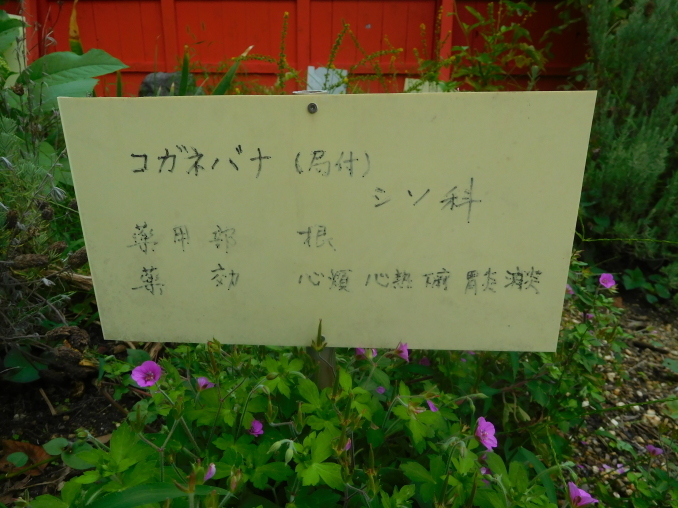 コガネバナ (局付)
シソ科
薬用部 根
薬 効 心煩 心熱